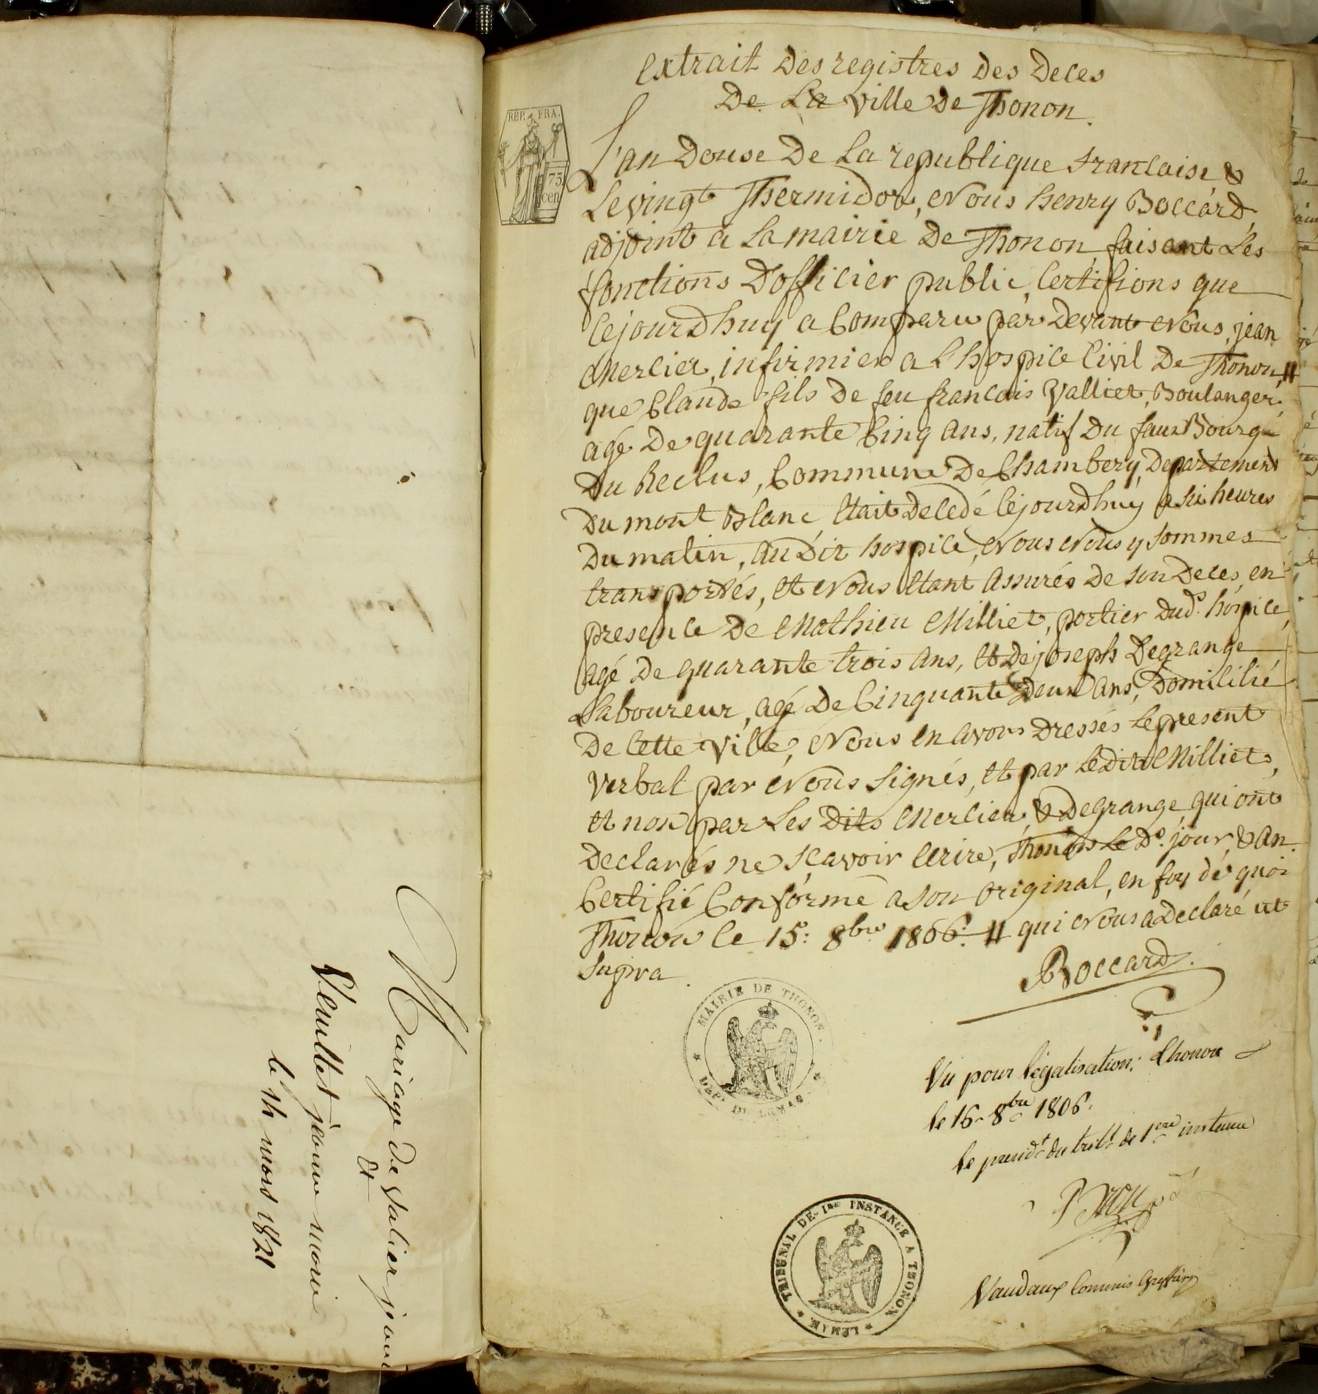 Extrait des registres des deces
De La ville de Thonon.
REP. FRA.
75
cen
L'an douse de La republique francaise &
Le vingt Thermidor, Nous henry Boccard
adjoint a La mairie de Thonon faisant Les
fonctions D'officier public, Certifions que
Cejourdhuy a Comparu par devant Nous, jean
Mercier, infirmier a L'hospice Civil de Thonon, #
que Claude fils de feu francois Valliet, Boulanger,
agé de quarante Cinq ans, natif du faux Bourg
du Reclus, Commune de Chambery, departement
du mont Blanc etait decedé cejourdhuy a six heures
du matin, au dit hospice, Nous Nous y sommes
transportés, et Nous etant assurés de son deces, en
presence de Mathieu Milliet, portier dud.t hospice,
agé de quarante trois ans, et de joseph Degrange
Laboureur, agé de Cinquante deux ans, domicilié
de cette ville, Nous en avons dressés le present
verbal par Nous signés, et par Ledit Milliet,
et non par Les dits Mercier, & Degrange, qui ont
declarés ne scavoir ecrire, Thonon Le d.t jour, & an.
Certifié Conforme a son original, en foy de quoi
Thonon le 15.e 8bre 1806. # qui Nous a declaré ut
Supra
Boccard
MAIRIE DE THONON.
DÉP.T DU LEMAN
Vu pour légalisation; Thonon
le 16 8bre 1806.
le presid.t du trib.l de 1ere instance
Vaudaux Commis Greffier
TRIBUNAL DE 1re INSTANCE A THONON
LEMAN
Mariage de Valier jean
et
Veuillet jeanne marie
le 14 mars 1821